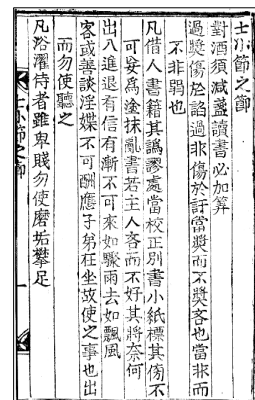 士小節之節
對酒須減盞讀書必加筭
過奬傷於諂過非傷於訐當奬而不奬吝也當非而
不非弱也
凡借人書籍其譌謬處當校正別書小紙標其傍不
可妄爲塗抹亂書若主人吝而不好其將奈何
出入進退有信有漸不可來如驟雨去如飄風
客或善談淫媟不可酬應子弟在坐故使之事也出
而勿使聽之
凡浴濯侍者雖卑賤勿使磨垢攀足
士小節之節
一